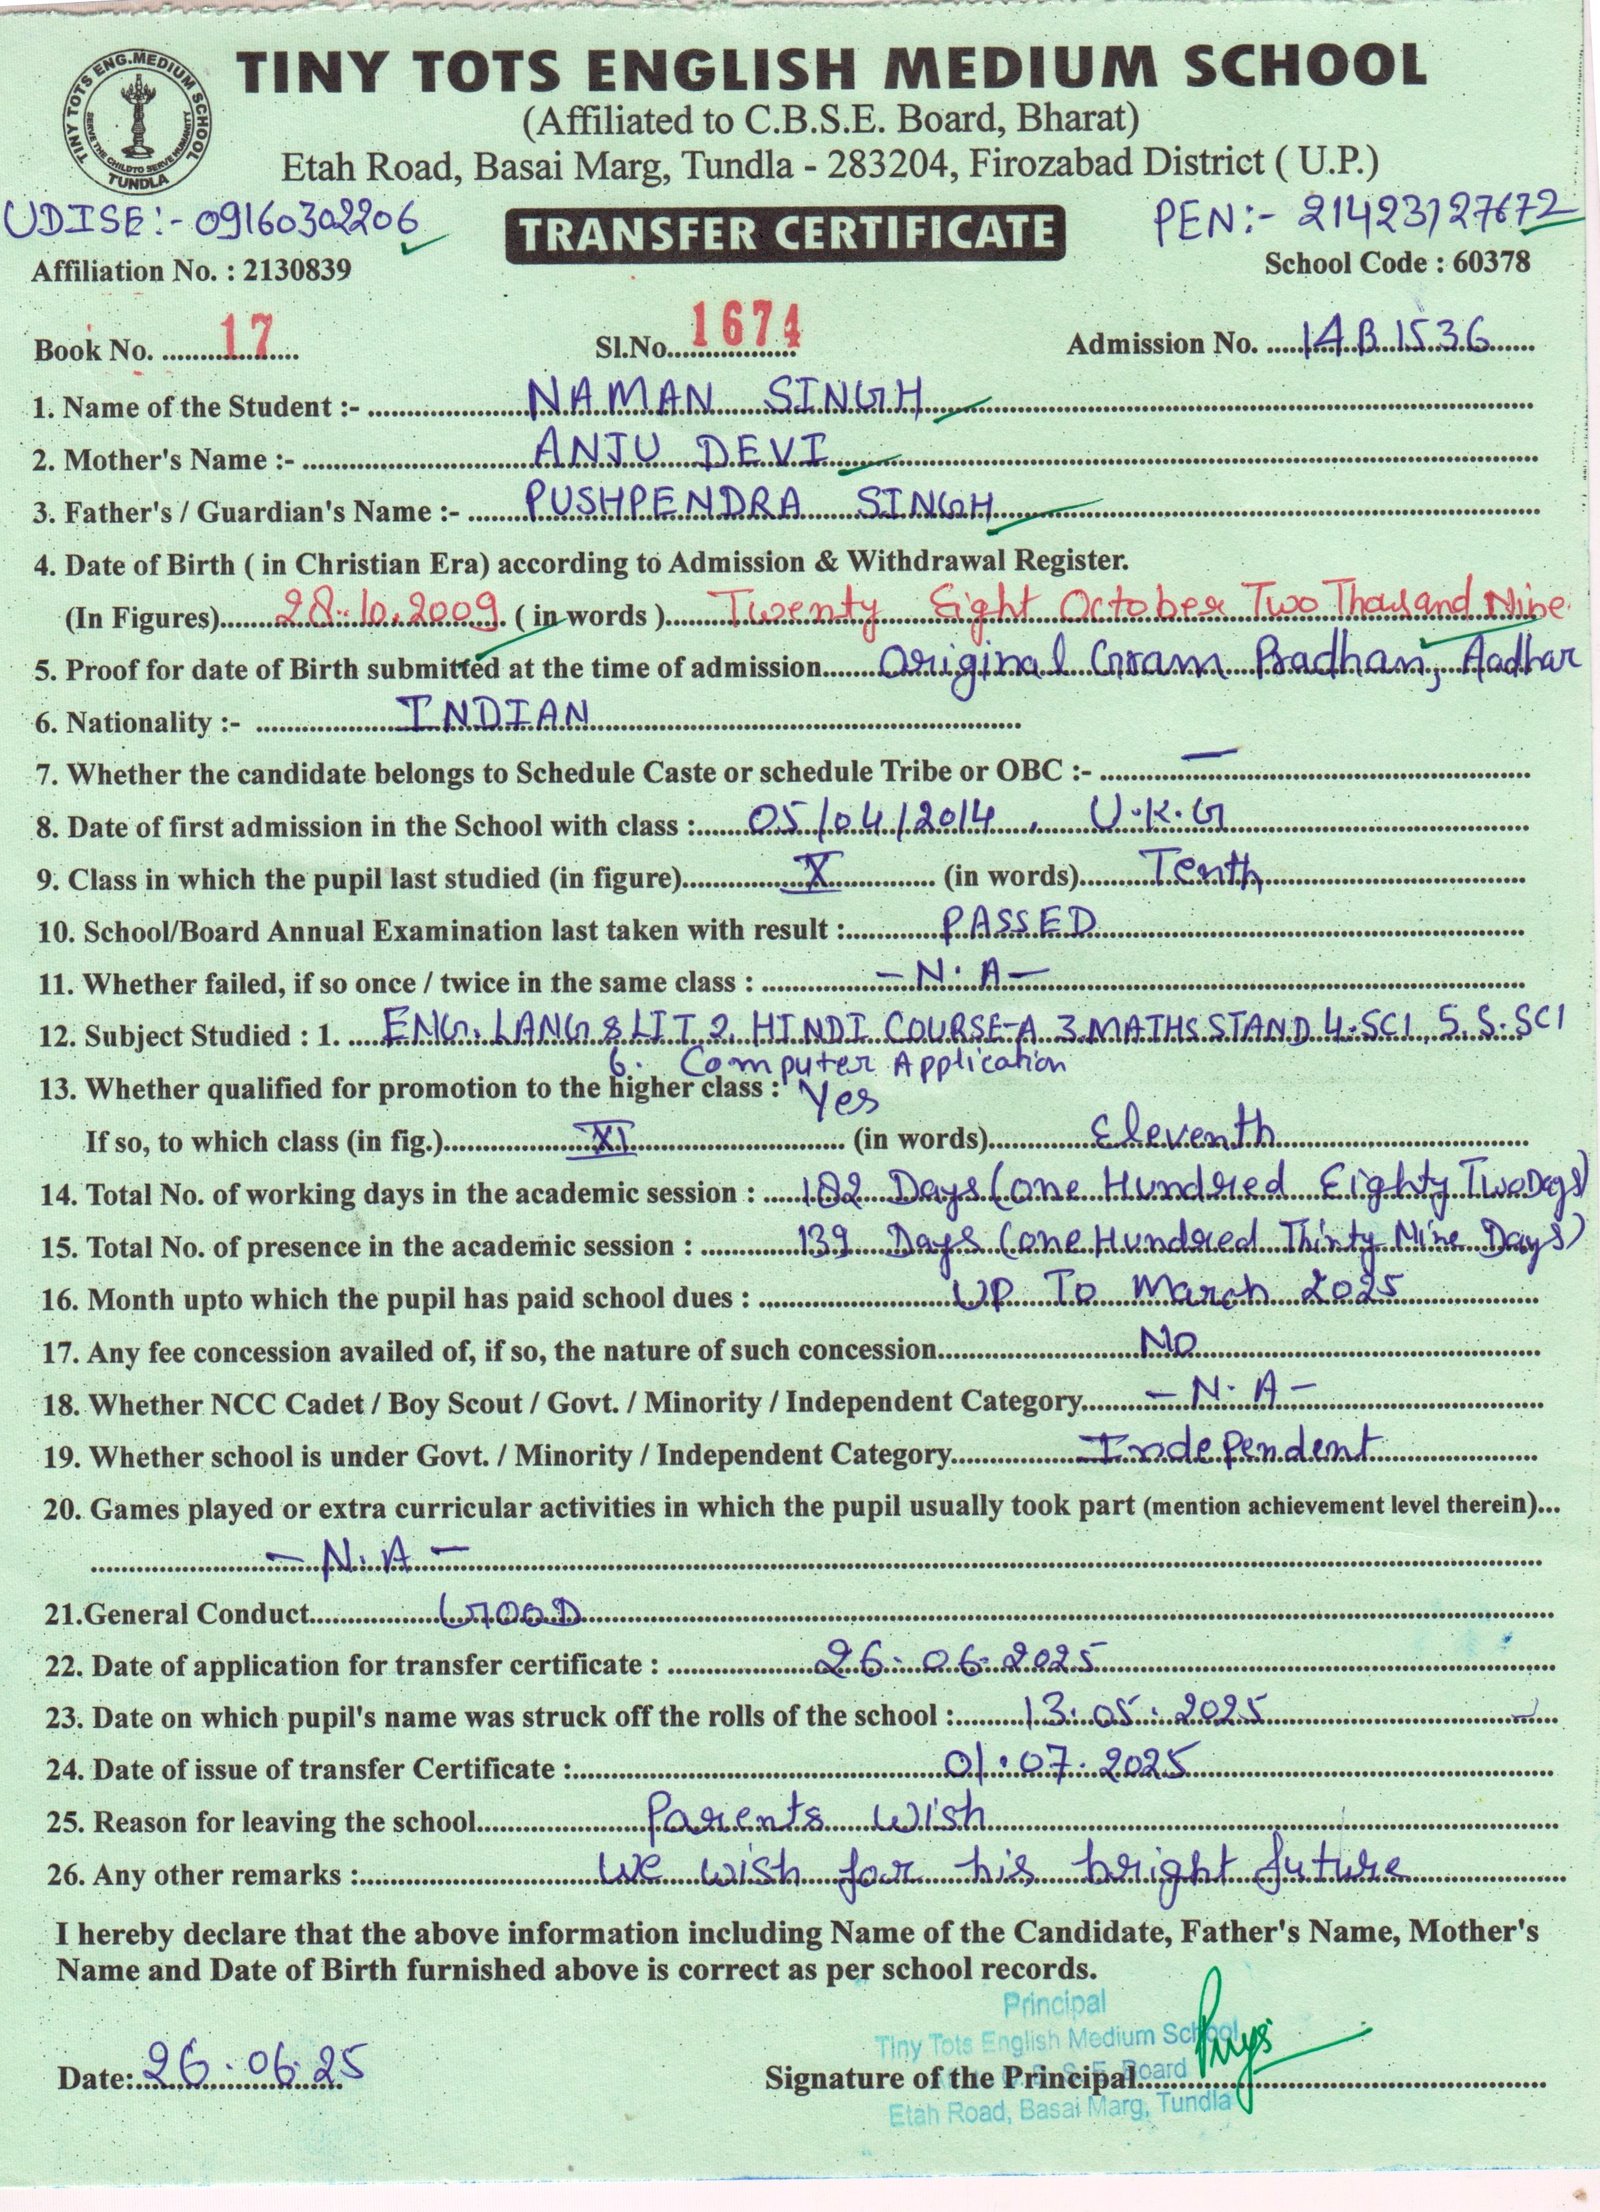 TINY TOTS ENG.MEDIUM SCHOOL
SERVE THE CHILD TO SERVE HUMANITY
TUNDLA
TINY TOTS ENGLISH MEDIUM SCHOOL
(Affiliated to C.B.S.E. Board, Bharat)
Etah Road, Basai Marg, Tundla - 283204, Firozabad District ( U.P.)
UDISE:- 09160302206
TRANSFER CERTIFICATE
PEN:- 21423127672
Affiliation No. : 2130839
School Code : 60378
Book No. 17 Sl.No. 1674 Admission No. 14B1536
1. Name of the Student :- NAMAN SINGH
2. Mother's Name :- ANJU DEVI
3. Father's / Guardian's Name :- PUSHPENDRA SINGH
4. Date of Birth ( in Christian Era) according to Admission & Withdrawal Register.
(In Figures) 28.10.2009 ( in words ) Twenty Eight October Two Thousand Nine
5. Proof for date of Birth submitted at the time of admission Original Gram Pradhan, Aadhar
6. Nationality :- INDIAN
7. Whether the candidate belongs to Schedule Caste or schedule Tribe or OBC :- —
8. Date of first admission in the School with class : 05/04/2014, U.K.G
9. Class in which the pupil last studied (in figure) X (in words) Tenth
10. School/Board Annual Examination last taken with result : PASSED
11. Whether failed, if so once / twice in the same class : — N.A —
12. Subject Studied : 1. ENG. LANG & LIT 2. HINDI COURSE-A 3.MATHS STAND 4.SCI, 5. S.SCI
6. Computer Application
13. Whether qualified for promotion to the higher class : Yes
If so, to which class (in fig.) XI (in words) Eleventh
14. Total No. of working days in the academic session : 182 Days (One Hundred Eighty Two Days)
15. Total No. of presence in the academic session : 139 Days (One Hundred Thirty Nine Days)
16. Month upto which the pupil has paid school dues : UP To March 2025
17. Any fee concession availed of, if so, the nature of such concession No
18. Whether NCC Cadet / Boy Scout / Govt. / Minority / Independent Category — N.A —
19. Whether school is under Govt. / Minority / Independent Category Independent
20. Games played or extra curricular activities in which the pupil usually took part (mention achievement level therein)...
— N.A —
21.General Conduct GOOD
22. Date of application for transfer certificate : 26.06.2025
23. Date on which pupil's name was struck off the rolls of the school : 13.05.2025
24. Date of issue of transfer Certificate : 01.07.2025
25. Reason for leaving the school Parents wish
26. Any other remarks : We wish for his bright future
I hereby declare that the above information including Name of the Candidate, Father's Name, Mother's
Name and Date of Birth furnished above is correct as per school records.
Principal
Tiny Tots English Medium School
Board
Etah Road, Basai Marg, Tundla
Date: 26.06.25 Signature of the Principal